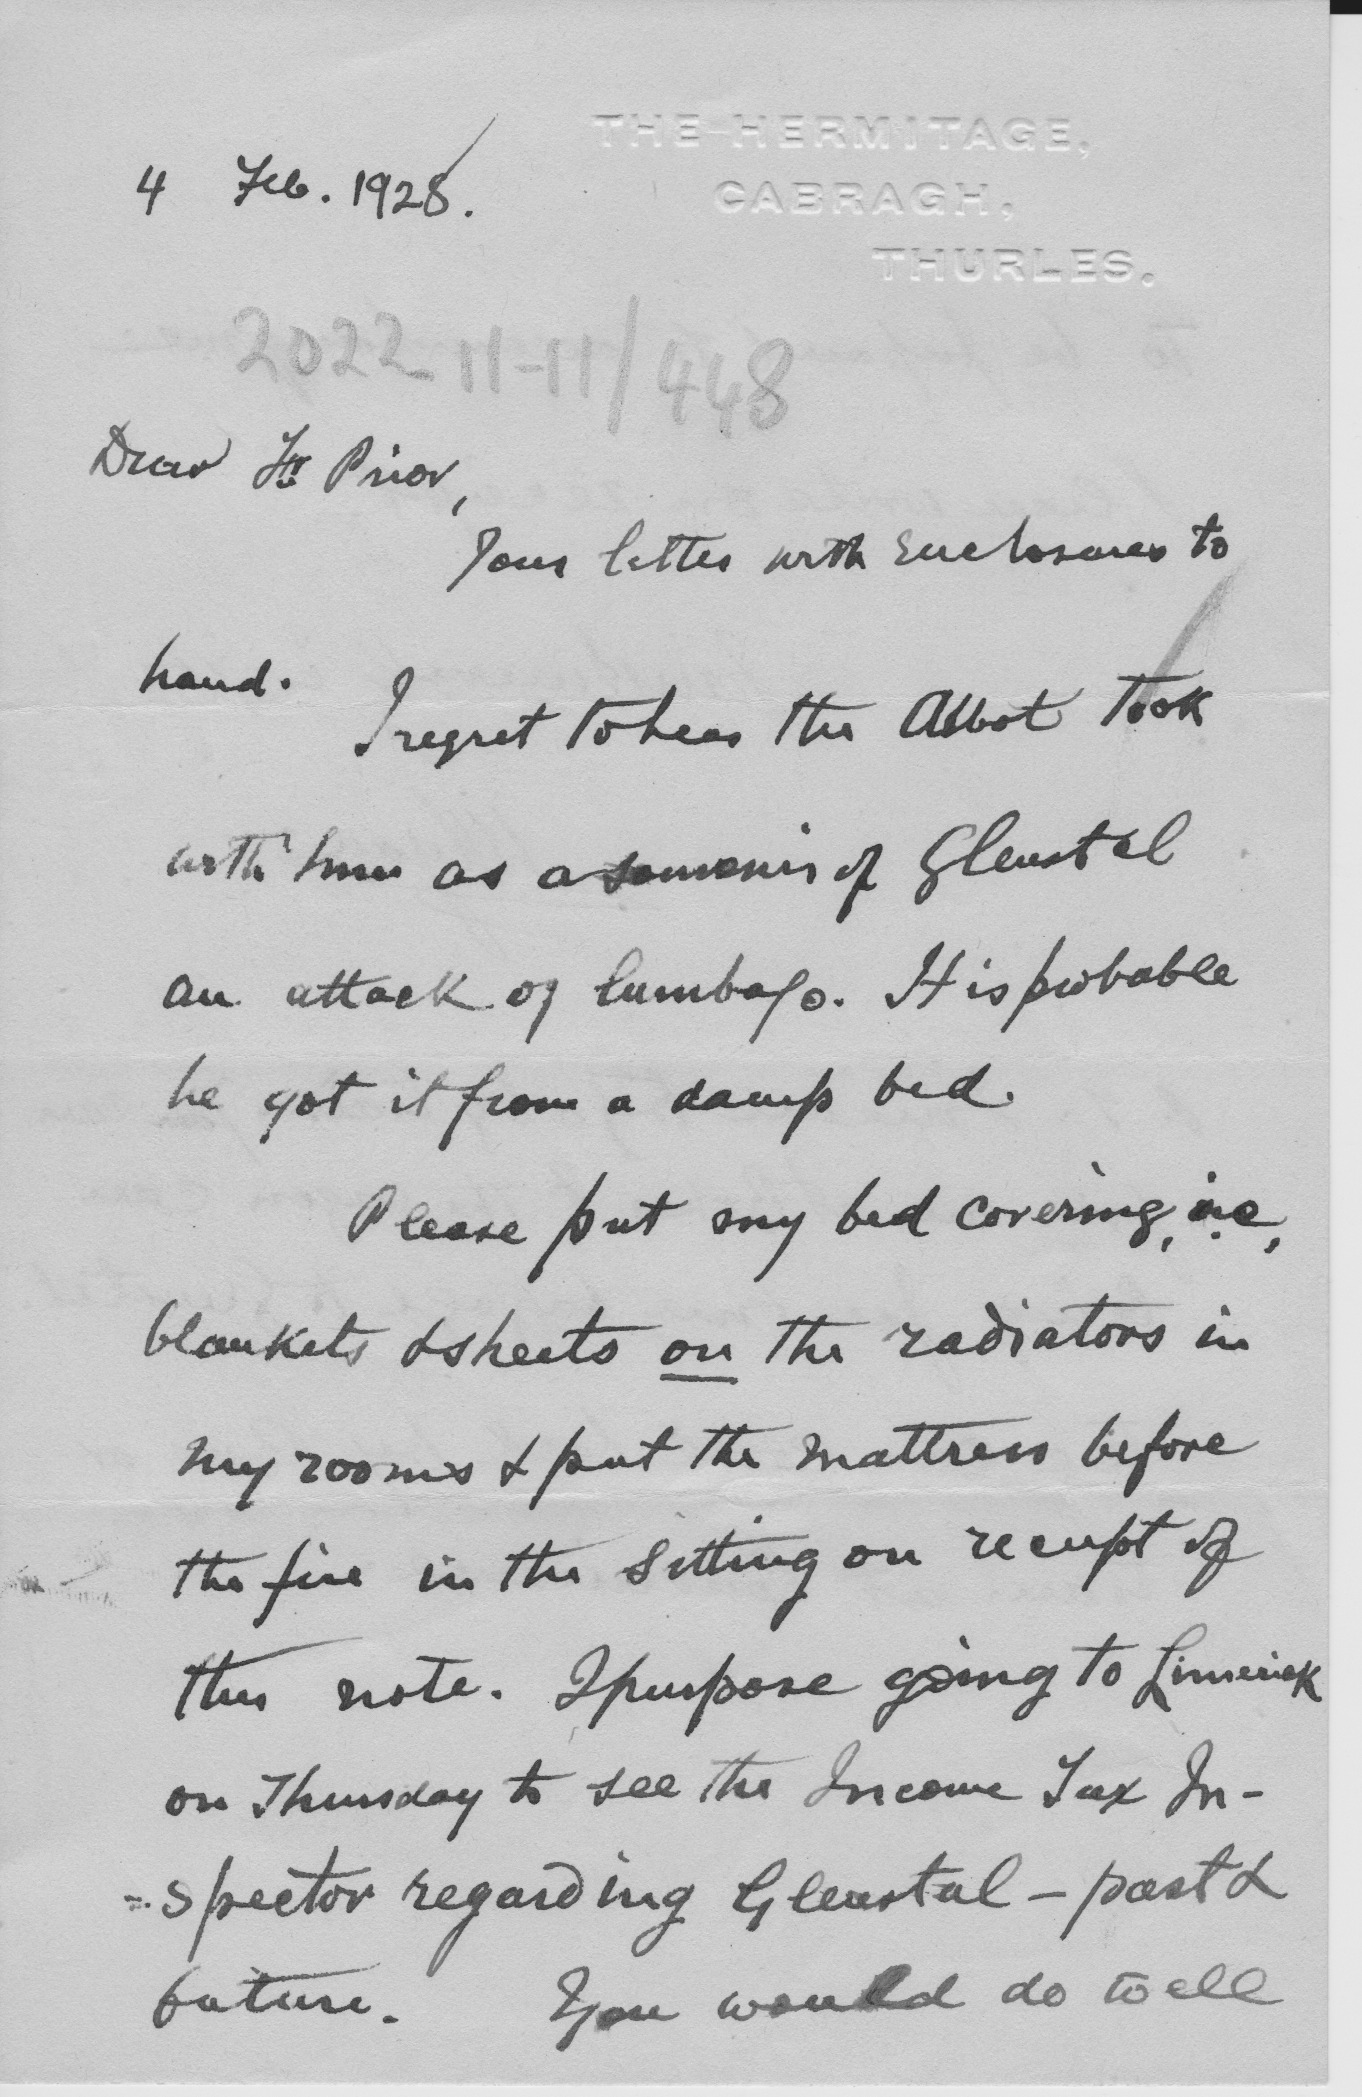 THE HERMITAGE,
CABRAGH,
THURLES.
4 Feb. 1928.
2022 11-11/448
Dear Fr Prior,
Your letter with enclosures to
hand. I regret to hear the Abbot took
with him as a souvenir of Glenstal
an attack of lumbago. It is probable
he got it from a damp bed.
Please put my bed covering, i.e,
blankets & sheets on the radiators in
my rooms & put the mattress before
the fire in the sitting on receipt of
this note. I purpose going to Limerick
on Thursday to see the Income Tax In-
=spector regarding Glenstal - past &
future. You would do well